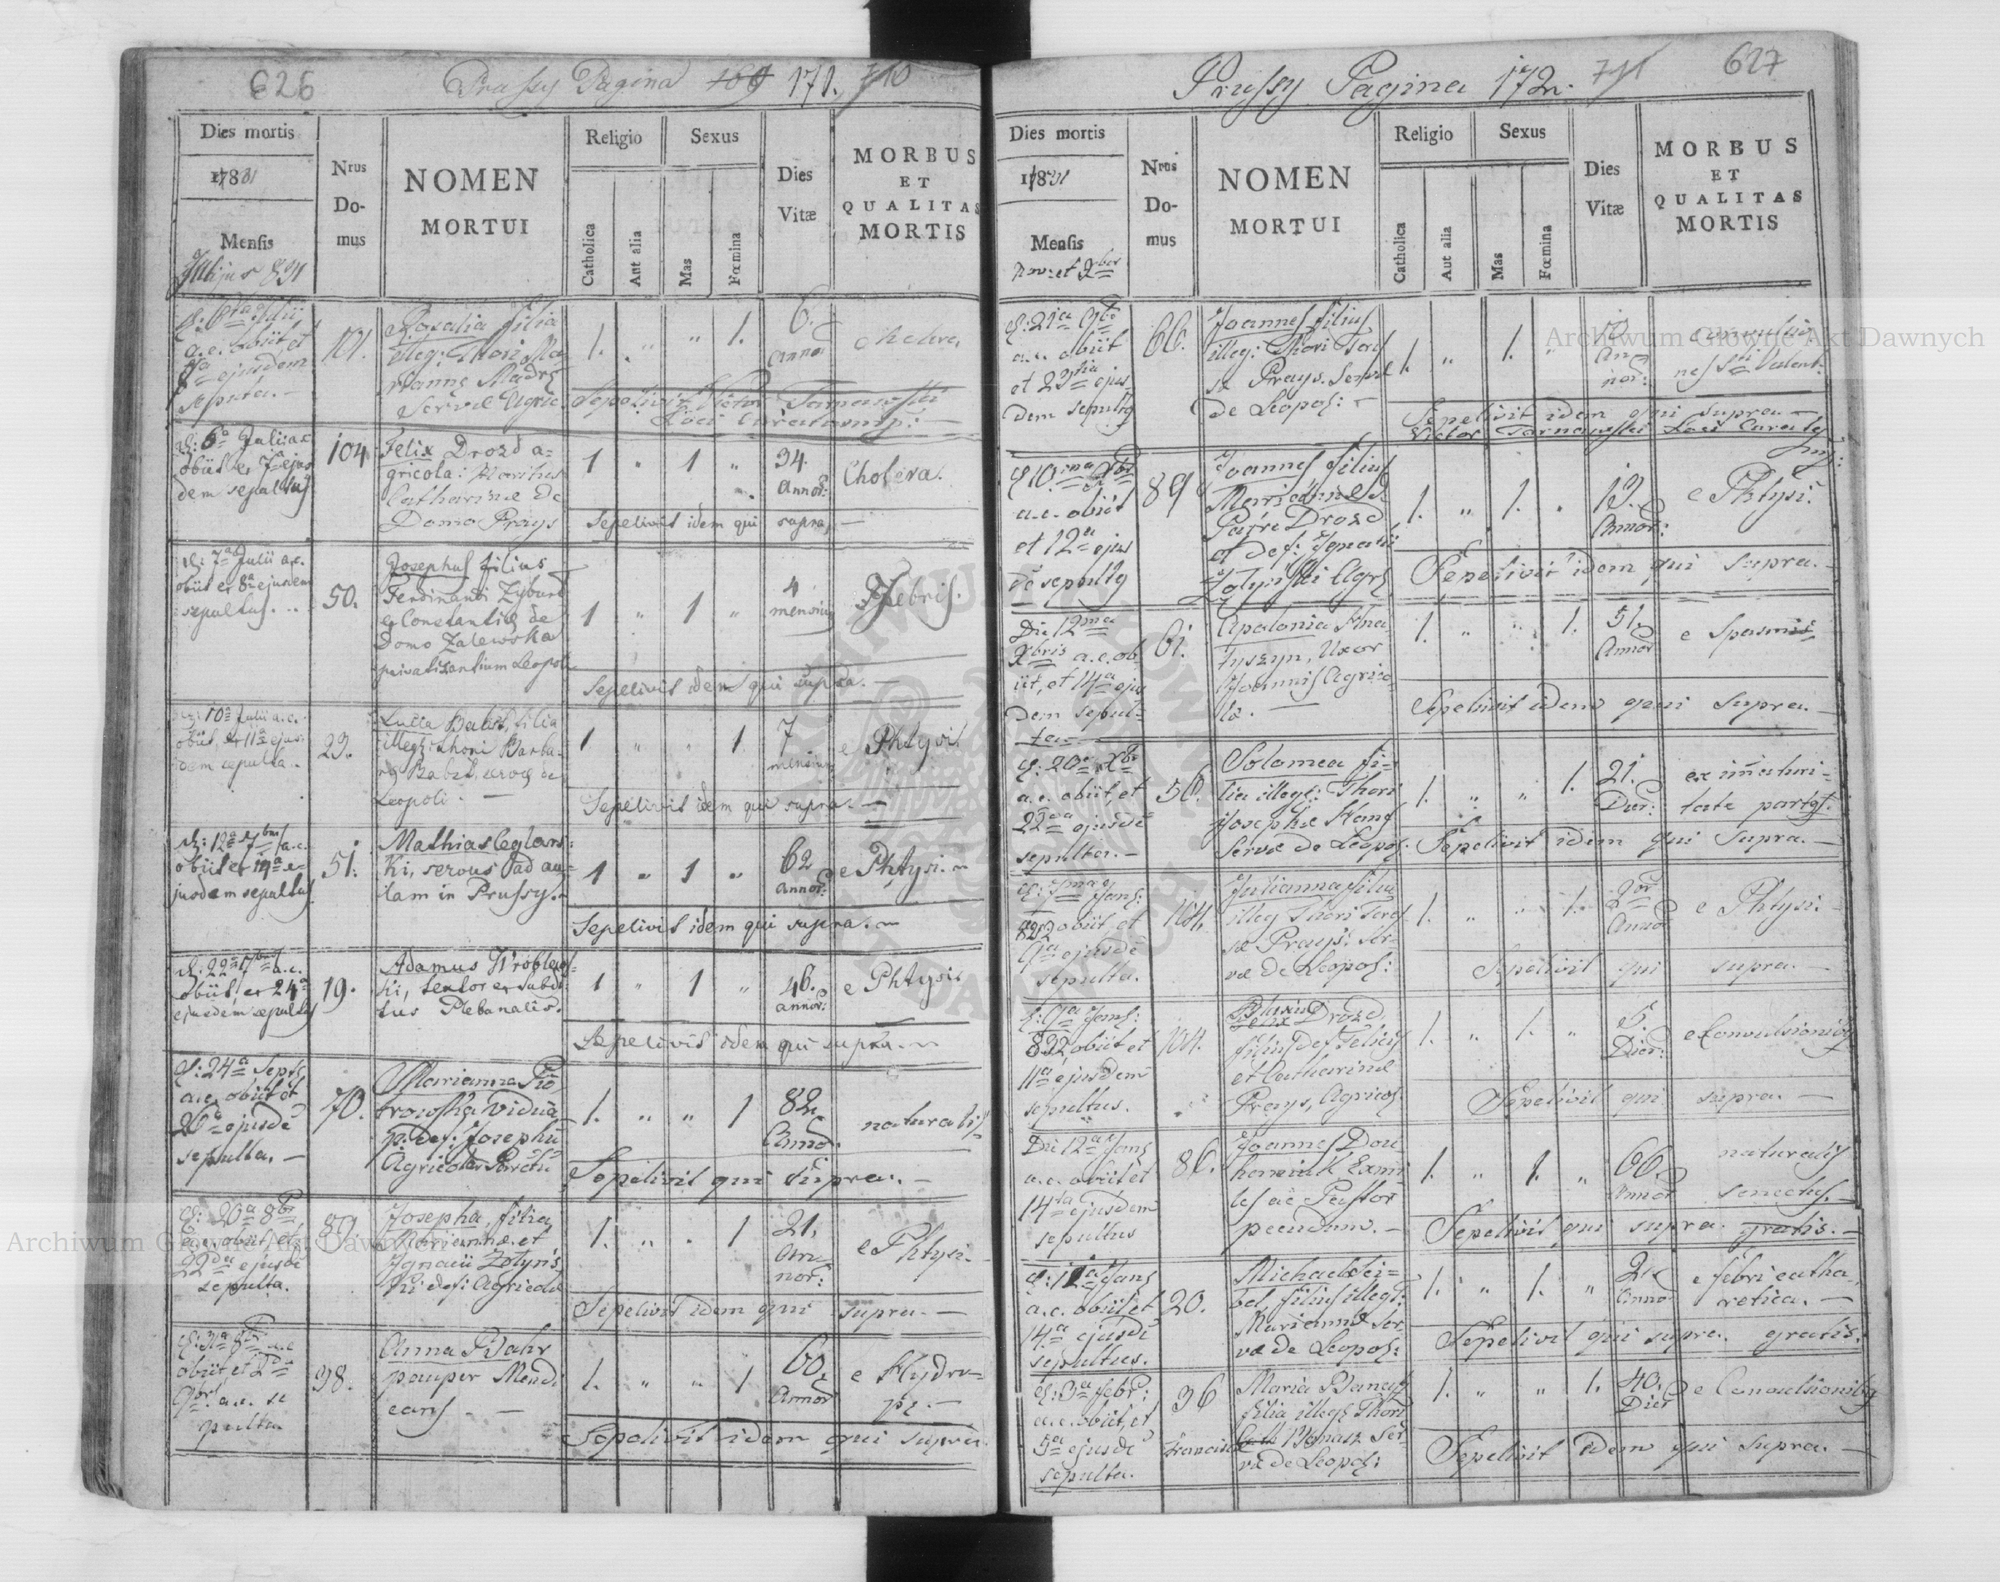 626
Prussy Pagina 169 171. 710
Dies mortis
1831
Mensis
Julius 831
Nrus
Do-
mus
NOMEN
MORTUI
Religio
Catholica
Aut alia
Sexus
Mas
Fœmina
Dies
Vitæ
MORBUS
ET
QUALITAS
MORTIS
a.c. obiit et
ejusdem
sepulta. —
101.
Rosalia filia
illeg: Thori Ma
rianna
servæ
1. " " 1.
6.
Annor
Cholera
Sepelivit Victor Tarnawski
Loci Curatus mp:
D: 6a Julii a.c.
obiit et 7a ejus
dem sepultus
104
Felix Drozd a-
gricola: Maritus
Catharinæ de
Domo Prays
1 " 1 "
34.
Annor:
Cholera.
Sepelivit idem qui supra, —
D: 7a Julii a.c.
obiit et 8a ejusdem
sepultus. ..
50.
Josephus filius
Ferdinandi
et Constantiæ de
Domo Zalewska
privatizantium Leopoli
1 " 1 "
4
mensium
Febris.
Sepelivit idem qui supra. —
10a Julii a.c.
obiit, et 11a ejus-
dem sepulta. .
23.
Lucia Babst, filia
illeg: thori Barba-
ræ Babst, servæ de
Leopoli. —
1 " " 1
7
mensium
e Phtysi.
Sepelivit idem qui supra. —
D: 12a 7bris a.c.
obiit et 14a e-
jusdem sepultus
51.
Mathias Ceglars
ki, servus ad au-
lam in Prussy. —
1 " 1 "
62
annor:
e Phtysi. ~
Sepelivit idem qui supra. ~
D: 22a 7bris a.c.
obiit, et 24a
ejusdem sepultus
19.
Adamus Wroblews-
ki, textor et subdi
tus Plebanalis.
1 " 1 "
46.
annor:
e Phtysi
Sepelivit idem qui supra. ~
D: 24a Septs
a.c. obiit et
26a ejusdē
sepulta. —
70.
Marianna Pio
trowska vidua
p. def: Josephū
Agricola
1. " " 1
82.
Annor.
naturalis
Sepelivit qui supra. —
D: 20a 8bris
a.c. obiit et
22da ejusdē
sepulta.
89.
Josepha, filia
Mariannæ et
Ignacii Zotyńs
ki def: Agricolæ
1. " " 1
21.
An-
nor:
e Phtysi. —
Sepelivit idem qui supra. —
D: 31a 8bris a.c
obiit et 2da
9bris a.c. se
pulta
98.
Anna Bahr
pauper Mendi
cans. —
1. " " 1
60.
Annor
e Hydro-
pe. —
Sepelivit idem qui supra.
627
Prussy Pagina 172. 711
Dies mortis
1831
Mensis
Nov: et Xber
Nrus
Do-
mus
NOMEN
MORTUI
Religio
Catholica
Aut alia
Sexus
Mas
Fœmina
Dies
Vitæ
MORBUS
ET
QUALITAS
MORTIS
D: 21a 9bris
a.c. obiit
et 23tia ejus
dem sepultus
66.
Joannes filius
illeg: Thori Teres
sæ Prays. Servæ
de Leopol: —
1. " 1. "
10
An
nor:
convulsio
nes Sti Valent:
Sepelivit idem qui supra —
Victor Tarnawski Loci Curatus
mp:
D 10ma Xbris
a.c. obiit
et 12a ejus
dē sepultus
89
Joannes filius
Mariannæ
Drozd
et def: Ignatii
Zotyński Agr:
1. " 1. "
13.
Annor:
e Phtysi.
Sepelivit idem qui supra. —
Die 12ma
Xbris a.c. ob
iit, et 14a ejus
dem sepul-
ta —
61.
Apolonia Hna-
tyszyn, Uxor
Joannis Agrico-
læ. —
1. " " 1.
51.
Annor
e Spasmis
Sepelivit idem qui supra. —
D: 20a Xbris
a.c. obiit, et
22da ejusdē
sepulta. —
56.
Solomea fi-
lia illegt: Thori
Josephæ
Servæ de Leopol:
1. " " 1.
21.
Dier:
ex im̄aturi-
tate partus.
Sepelivit idem qui supra. —
D: 7ma Jans:
832 obiit, et
9a ejusdē
sepulta.
104.
Julianna filia
illeg Thori Teres
sæ Prays: ser-
væ de Leopol:
1. " " 1.
2or
Annor
e Phtysi. —
Sepelivit qui supra. —
D: 9a Jans:
832 obiit et
11a ejusdem
sepultus.
104.
Blasius
Felix Drozd,
filius def Felicis
et Catharinæ
Prays, Agricol:
1. " 1. "
5.
Dier:
e Convulsionibus
Sepelivit qui supra. —
Die 12a Jans
a.c. obiit et
14ta ejusdem
sepultus
86.
Joannes Dou
homiuk Exmi
les ac Pastor
pecudum. —
1. " 1. "
66
Annor
naturalis
senectus. —
Sepelivit, qui supra gratis. —
D: 12a Jans
a.c. obiit et
14a ejusdē
sepultus.
20.
Michael Sei-
bel, filius illegt:
Mariannæ ser-
væ de Leopol:
1. " 1. "
2
Annor
e febri catha-
retica. —
Sepelivit qui supra. gratis.
D: 3a febr:
a.c. obiit, et
5a ejusdē
sepulta.
36
Maria Banasz
filia illegt Thori
Francisca Banasz ser-
væ de Leopol:
1. " " 1.
40.
Dier
e Convulsionibus
Sepelivit idem qui supra. —
Archiwum Główne Akt Dawnych
Archiwum Główne Akt Dawnych